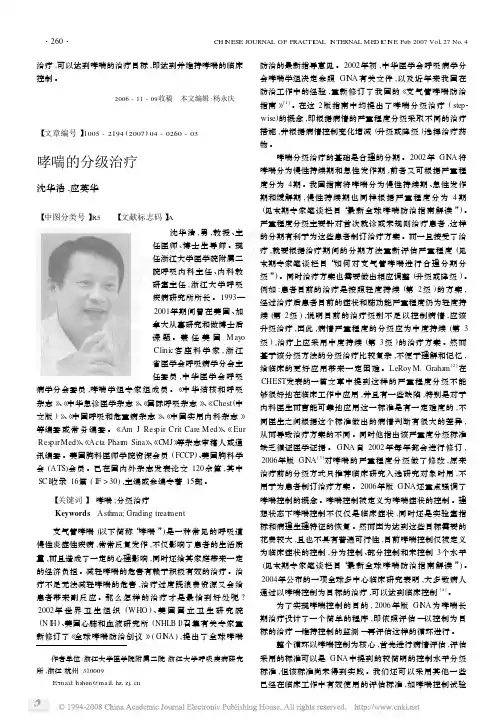 ·260·
CHINESE JOURNAL OF PRACTICAL INTERNAL MEDICINE Feb 2007 Vol 27 No. 4
治疗 ,可以达到哮喘的治疗目标 ,即达到并维持哮喘的临床
控制。
2006 - 11 - 09收稿 本文编辑 :杨永庆
【文章编号 】1005 - 2194 (2007) 04 - 0260 - 03
哮喘的分级治疗
沈华浩 ,应英华
【中图分类号 】R5 【文献标志码 】A
沈华浩 ,男 ,教授、主
任医师、博士生导师。现
任浙江大学医学院附属二
院呼吸内科主任、内科教
研室主任 ,浙江大学呼吸
疾病研究所所长。1993—
2001年期间曾在美国、加
拿大从事研究和做博士后
课题。兼任美国 Mayo
Clinic客座科学家 ,浙江
省医学会呼吸病学分会主
任委员 ,中华医学会呼吸
病学分会委员 ,哮喘学组专家组成员。《中华结核和呼吸
杂志 》、《中华急诊医学杂志 》、《国际呼吸杂志 》、《Chest(中
文版 ) 》、《中国呼吸和危重病杂志 》、《中国实用内科杂志 》
等编委或常务编委。《Am J Respir Crit Care Med》、《Eur
RespirMed》、《Acta Pharm Sina》、《CMJ》等杂志审稿人或通
讯编委。美国胸科医师学院资深会员 (FCCP) ,美国胸科学
会 (ATS)会员。已在国内外杂志发表论文 120余篇 ,其中
SCI收录 16篇 ( IF > 30) ,主编或参编专著 15部。
【关键词 】 哮喘 ;分级治疗
Keywords Asthma; Grading treatment
支气管哮喘 (以下简称“哮喘 ”)是一种常见的呼吸道
慢性炎症性疾病 ,常常反复发作 ,不仅影响了患者的生活质
量 ,而且造成了一定的心理影响 ,同时还给其家庭带来一定
的经济负担。减轻哮喘的危害有赖于积极有效的治疗。治
疗不足无法减轻哮喘的危害 ,治疗过度既浪费资源又会给
患者带来副反应。那么怎样的治疗才是最恰到好处呢 ?
2002年世界卫生组织 (WHO) 、美国国立卫生研究院
(N IH) 、美国心肺和血液研究所 (NHLB I)召集有关专家重
新修订了《全球哮喘防治创议 》(GINA) ,提出了全球哮喘
作者单位 :浙江大学医学院附属二院 浙江大学呼吸疾病研究
所 ,浙江 杭州 310009
E-mail: hshen@mail. hz. zj. cn
防治的最新指导意见。2002年初 ,中华医学会呼吸病学分
会哮喘学组决定参照 GINA有关文件 ,以及近年来我国在
防治工作中的经验 ,重新修订了我国的《支气管哮喘防治
指南 》[1]。在这 2版指南中均提出了哮喘分级治疗 ( step-
wise)的概念 ,即根据病情的严重程度分级采取不同的治疗
措施 ,并根据病情控制变化增减 (升级或降级 )选择治疗药
物。
哮喘分级治疗的基础是合理的分期。2002年 GINA将
哮喘分为慢性持续期和急性发作期 ,前者又可根据严重程
度分为 4期。我国指南将哮喘分为慢性持续期、急性发作
期和缓解期 ,慢性持续期也同样根据严重程度分为 4期
(见本期专家笔谈栏目“最新全球哮喘防治指南解读 ”) 。
严重程度分级主要针对首次就诊或未规则治疗患者 ,这样
的分期有利于为这些患者制订治疗方案。而一旦接受了治
疗 ,就要根据治疗期间的分期方法重新评估严重程度 (见
本期专家笔谈栏目“如何对支气管哮喘进行合理分期分
级 ”) 。同时治疗方案也需要做出相应调整 (升级或降级 ) 。
例如 :患者目前的治疗是按照轻度持续 (第 2级 )的方案 ,
经过治疗后患者目前的症状和肺功能严重程度仍为轻度持
续 (第 2级 ) ,说明目前的治疗级别不足以控制病情 ,应该
升级治疗 ,因此 ,病情严重程度的分级应为中度持续 (第 3
级 ) ,治疗上应采用中度持续 (第 3级 )的治疗方案。然而
基于该分级方法的分级治疗比较复杂 ,不便于理解和记忆 ,
给临床的更好应用带来一定困难。LeRoy M. Graham[2]在
CHEST发表的一篇文章中提到这样的严重度分级不能
够很好地在临床工作中应用 ,并且有一些缺陷 ,特别是对于
内科医生而言能可靠地应用这一标准是有一定难度的 ,不
同医生之间根据这个标准做出的病情判断有很大的差异 ,
从而导致治疗方案的不同。同时他指出该严重度分级标准
缺乏循证医学证据。GINA自 2002年每年都会进行修订 ,
2006年版 GINA[3]对哮喘的严重程度分级做了修改 ,原来
治疗前的分级方式只推荐临床研究入选研究对象时用 ,不
用于为患者制订治疗方案。2006年版 GINA还重点强调了
哮喘控制的概念。哮喘控制被定义为哮喘症状的控制。理
想状态下哮喘控制不仅仅是临床症状 ,同时还是实验室指
标和病理生理特征的恢复。然而因为达到这些目标需要的
花费较大 ,且也不具有普遍可行性 ,目前哮喘控制仅被定义
为临床症状的控制 ,分为控制、部分控制和未控制 3个水平
(见本期专家笔谈栏目“最新全球哮喘防治指南解读 ”) 。
2004年公布的一项全球多中心临床研究表明 ,大多数病人
通过以哮喘控制为目标的治疗 ,可以达到临床控制[4]。
为了实现哮喘控制的目的 ,2006年版 GINA为哮喘长
期治疗设计了一个简单的程序 ,即依照评估 —以控制为目
标的治疗 —维持控制的监测 —再评估这样的循环进行。
整个循环以哮喘控制为核心 ,首先进行病情评估 ,评估
采用的标准可以是 GINA中提到的较简明的控制水平分级
标准 ,但该标准尚未得到实践。我们还可以采用其他一些
已经在临床工作中有效使用的评估标准 ,如哮喘控制试验
© 1994-2008 China Academic Journal Electronic Publishing House. All rights reserved. http://www.cnki.net